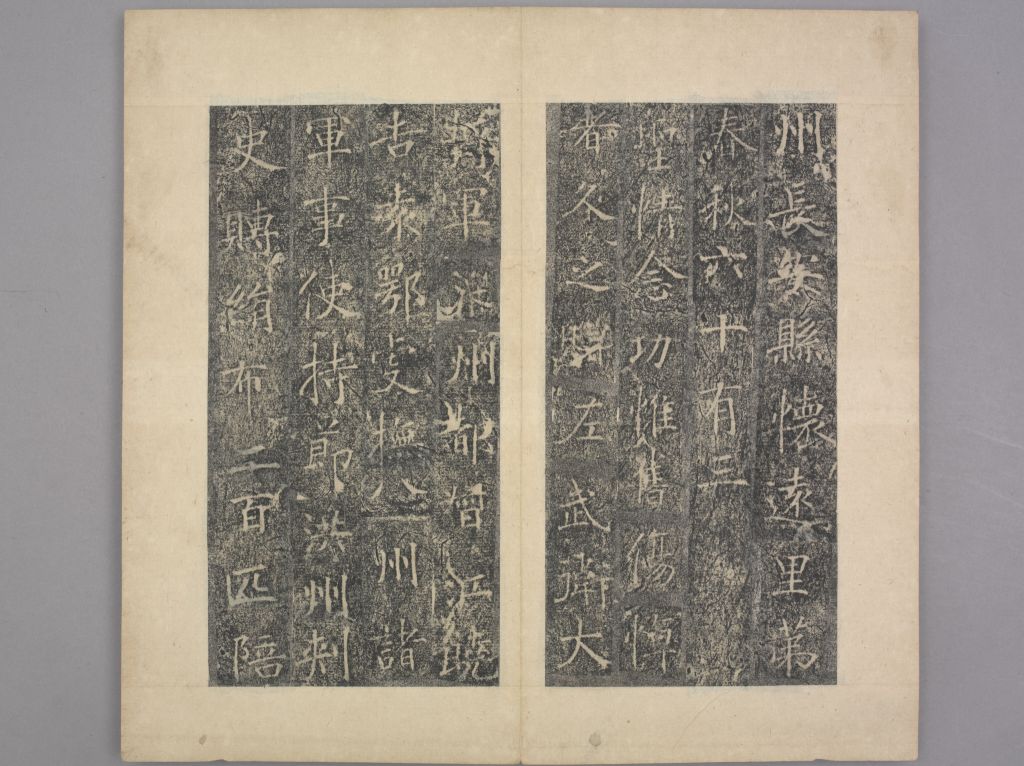 州長安縣懷遠里第
春秋六十有三
聖情念功惟舊傷悼
者久之贈左武衛大
將軍洪州都督江饒
吉袁鄂虔撫八州諸
軍事使持節洪州刺
史賻絹布二百匹陪